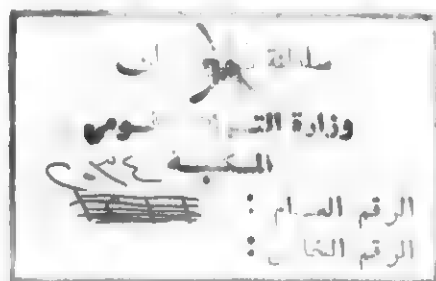 سلطنة عمان
وزارة التراث القومي
المكتبة
الرقم العام :
الرقم الخاص :